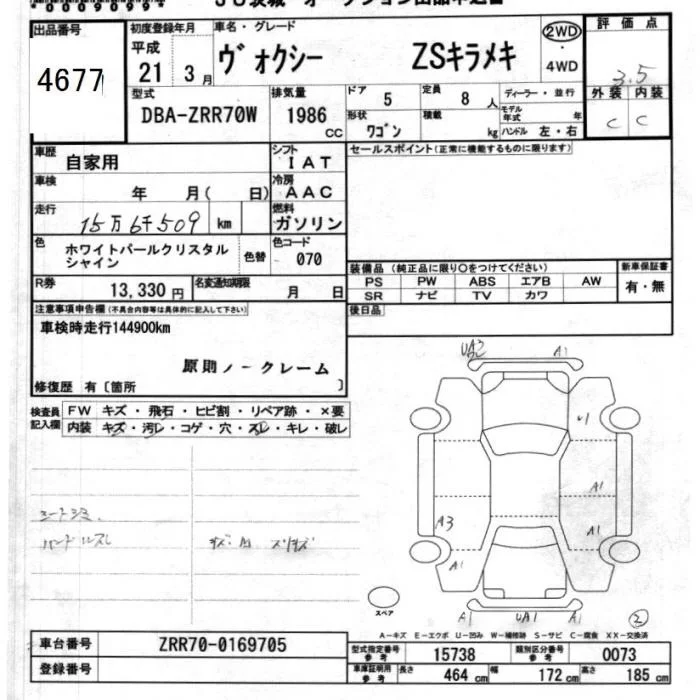 出品番号
4677
初度登録年月
平成
21 3月
車名・グレード
ヴォクシー ZSキラメキ
2WD
・
4WD
評価点
3.5
外装 内装
C C
型式
DBA-ZRR70W
排気量
1986 cc
ドア 5
定員 8 人
形状 ワゴン
積載 kg
ディーラー・並行
モデル年式 年
ハンドル 左・右
車歴 自家用
シフト IAT
車検 年 月( 日)
冷房 AAC
走行 15万6千509 km
燃料 ガソリン
色 ホワイトパールクリスタルシャイン
色替
色コード 070
R券 13,330円
名変通知期限 月 日
セールスポイント(正常に機能するものに限ります)
装備品(純正品に限り○をつけてください)
PS PW ABS エアB AW
SR ナビ TV カワ
新車保証書
有・無
後日品
注意事項申告欄(不具合内容等は具体的に記入して下さい)
車検時走行144900km
原則ノークレーム
修復歴 有〔箇所 〕
検査員記入欄
FW キズ・飛石・ヒビ割・リペア跡・×要
内装 キズ・汚レ・コゲ・穴・スレ・キレ・破レ
シートシミ
UA2 A1
U1
A1
A3
A1
A1
スペア
A1 UA1 A1
2
A-キズ E-エクボ U-凹み W-補修跡 S-サビ C-腐食 XX-交換済
車台番号 ZRR70-0169705
登録番号
型式指定番号 参考 15738
類別区分番号 参考 0073
車庫証明用 参考 長さ 464 cm 幅 172 cm 高さ 185 cm